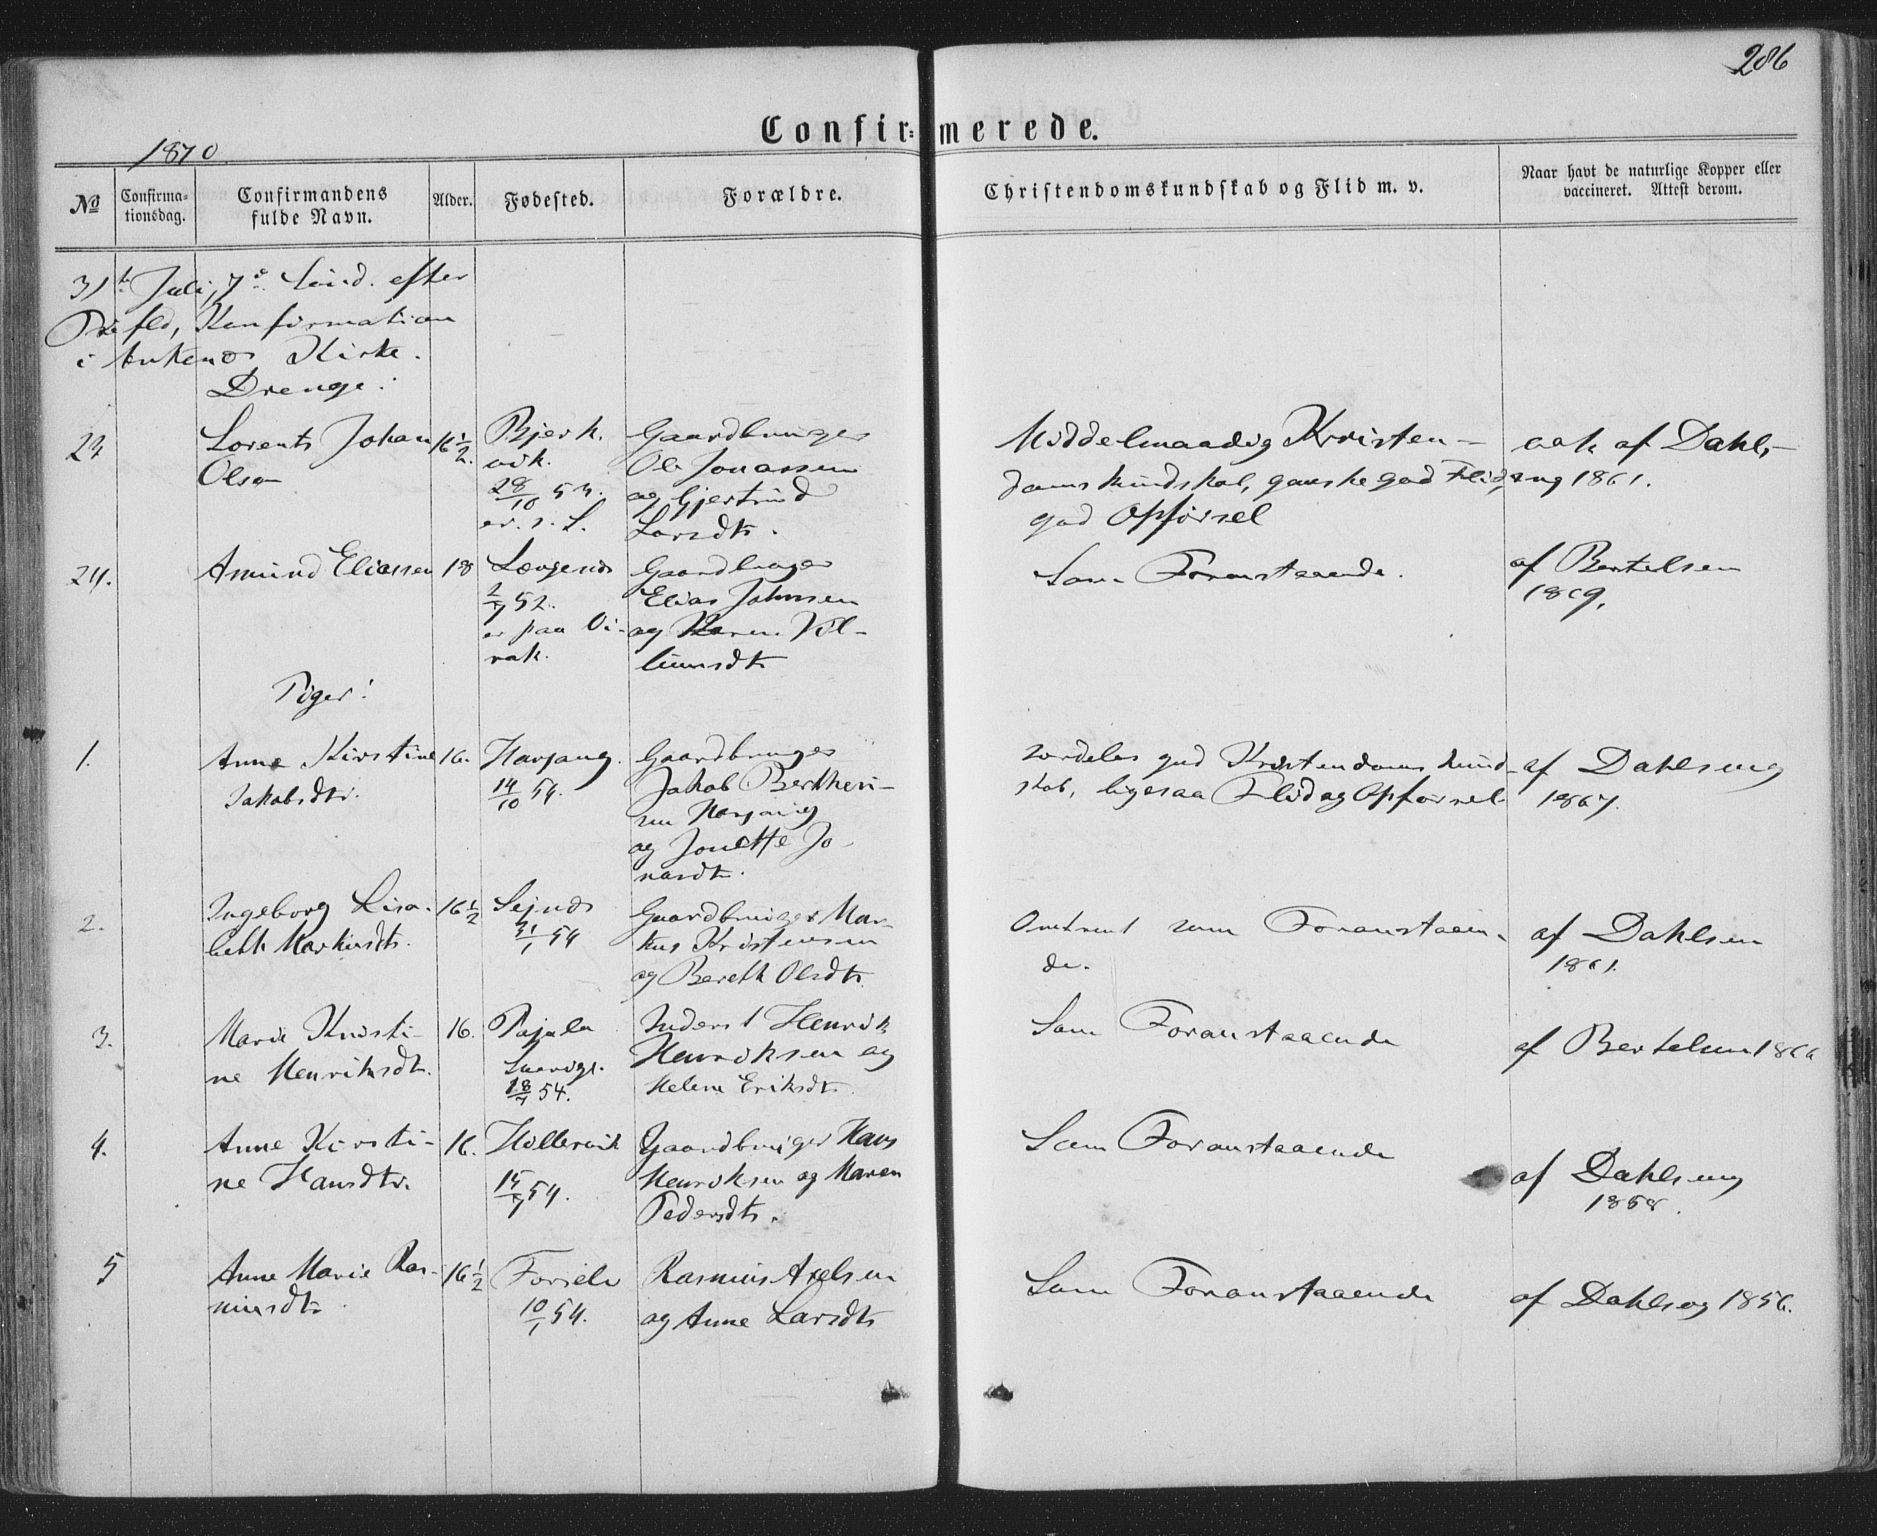 286
Confir= merede.
1870
№
Confirma-
tionsdag.
Confirmandens
fulde Navn.
Alder.
Fødested.
Forældre.
Christendomskundskab og Flid m. v.
Naar havt de naturlige Kopper eller
vaccineret. Attest derom.
31te Juli, 7de Sønd. efter
Konfirmation
i Ankenæs Kirke.
Drenge:
23
Lorents Johan
Olsen
16½
Bjerk-
vik.
28/10 53.
Gaardbruger
Ole Jonassen
og Gjertrud
Larsdtr.
Middelmaadig Kristen-
domskundskab, ganske god Flid,
god Opførsel
vak af Dahls-
eng 1861.
24.
Amund Eliassen
18
2/7 52.
er paa
Gaardbruger
Elias Johnsen
og Karen
Som Foranstaaende.
af Bertelsen
1869.
Piger:
1.
Anne Kirstine
Jakobsdtr.
16.
Harjang.
14/10 54.
Gaardbruger
Jakob Bertheu-
sen Harjang
og Jonette Jo-
nasdtr.
særdeles god Kristendomskund-
skab, ligesaa Flid og Opførsel
af Dahlseng
1867.
2.
Ingeborg Lisa-
beth Markusdtr.
16½
31/1 54
Gaardbruger Mar-
kus Kristensen
og Bereth Olsdtr.
Omtrent som Foranstaaen-
de.
af Dahlsen
1861.
3.
Marie Kristi-
ne Henriksdtr.
16.
Pajala
Sverige.
18/7 54.
Inderst Henrik
Henriksen og
Helene Eriksdtr.
Som Foranstaaende
af Bertelsen 1866
4.
Anne Kirsti-
ne Hansdtr.
16.
Hollervik
15/7 54.
Gaardbruger Hans
Henriksen og Maren
Pedersdtr.
Som Foranstaaende
af Dahlseng
1858.
5
Anne Marie Ras-
musdtr.
16½
10/1 54.
Rasmus Axelsen
og Anne Larsdtr.
Som Foranstaaende
af Dahlseng 1856.